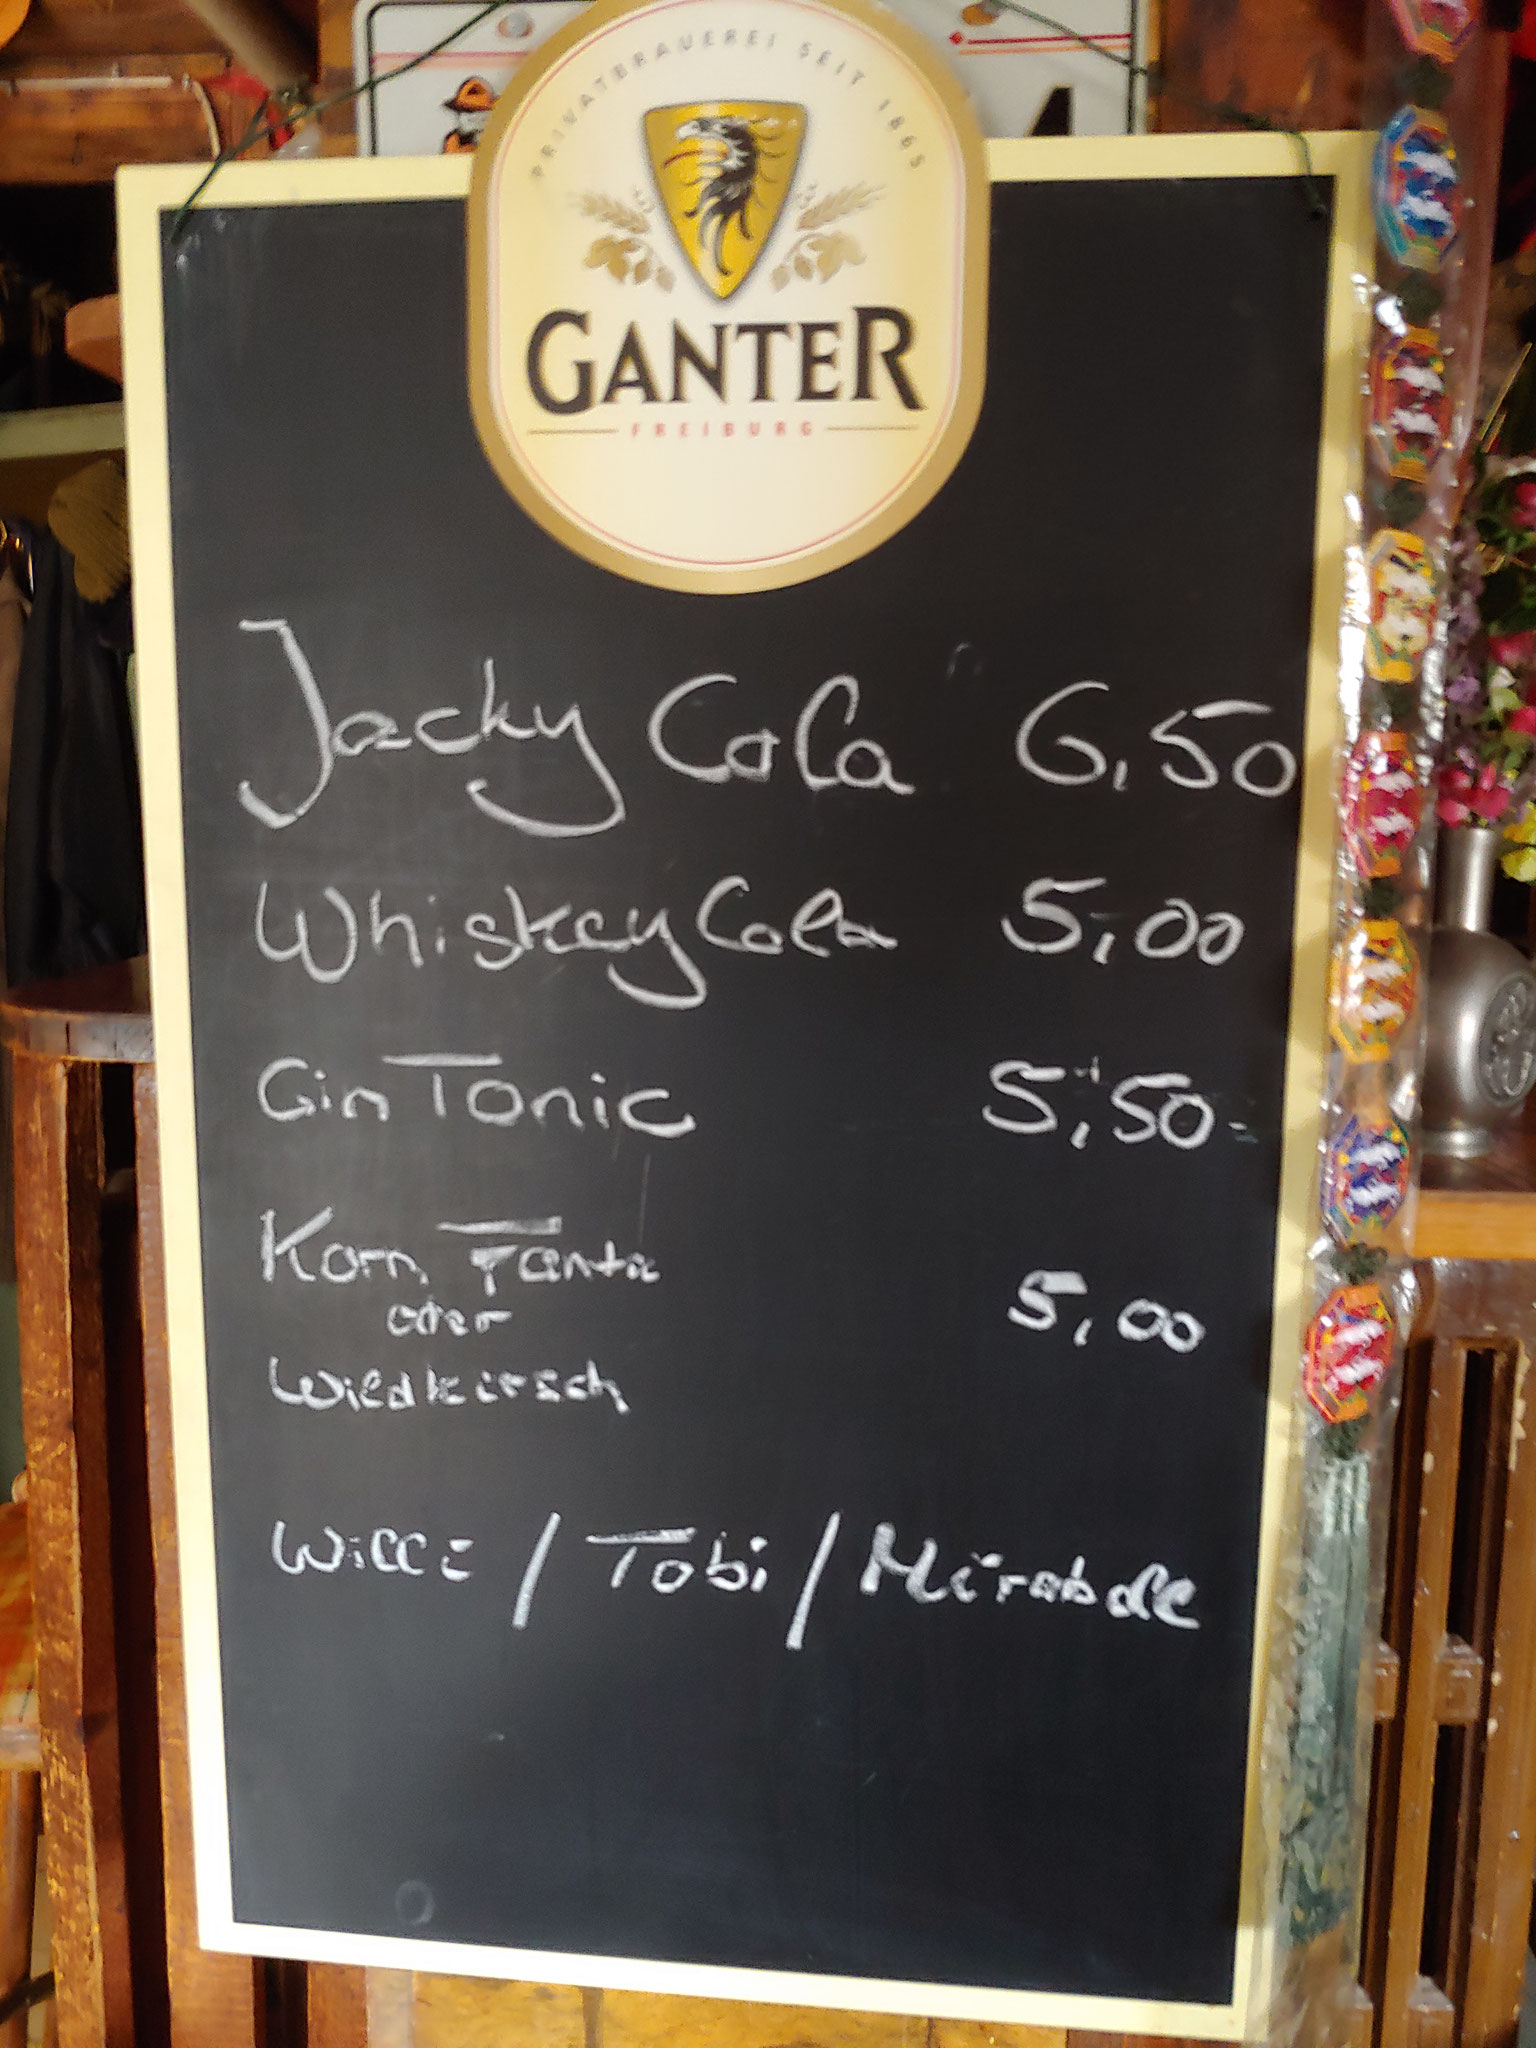 PRIVATBRAUEREI SEIT 1865
GANTER
FREIBURG
Jacky Cola 6,50
Whiskey Cola 5,00
Gin Tonic 5,50
Korn Fanta
oder 5,00
Wildkirsch
Willi / Tobi / Mirabelle